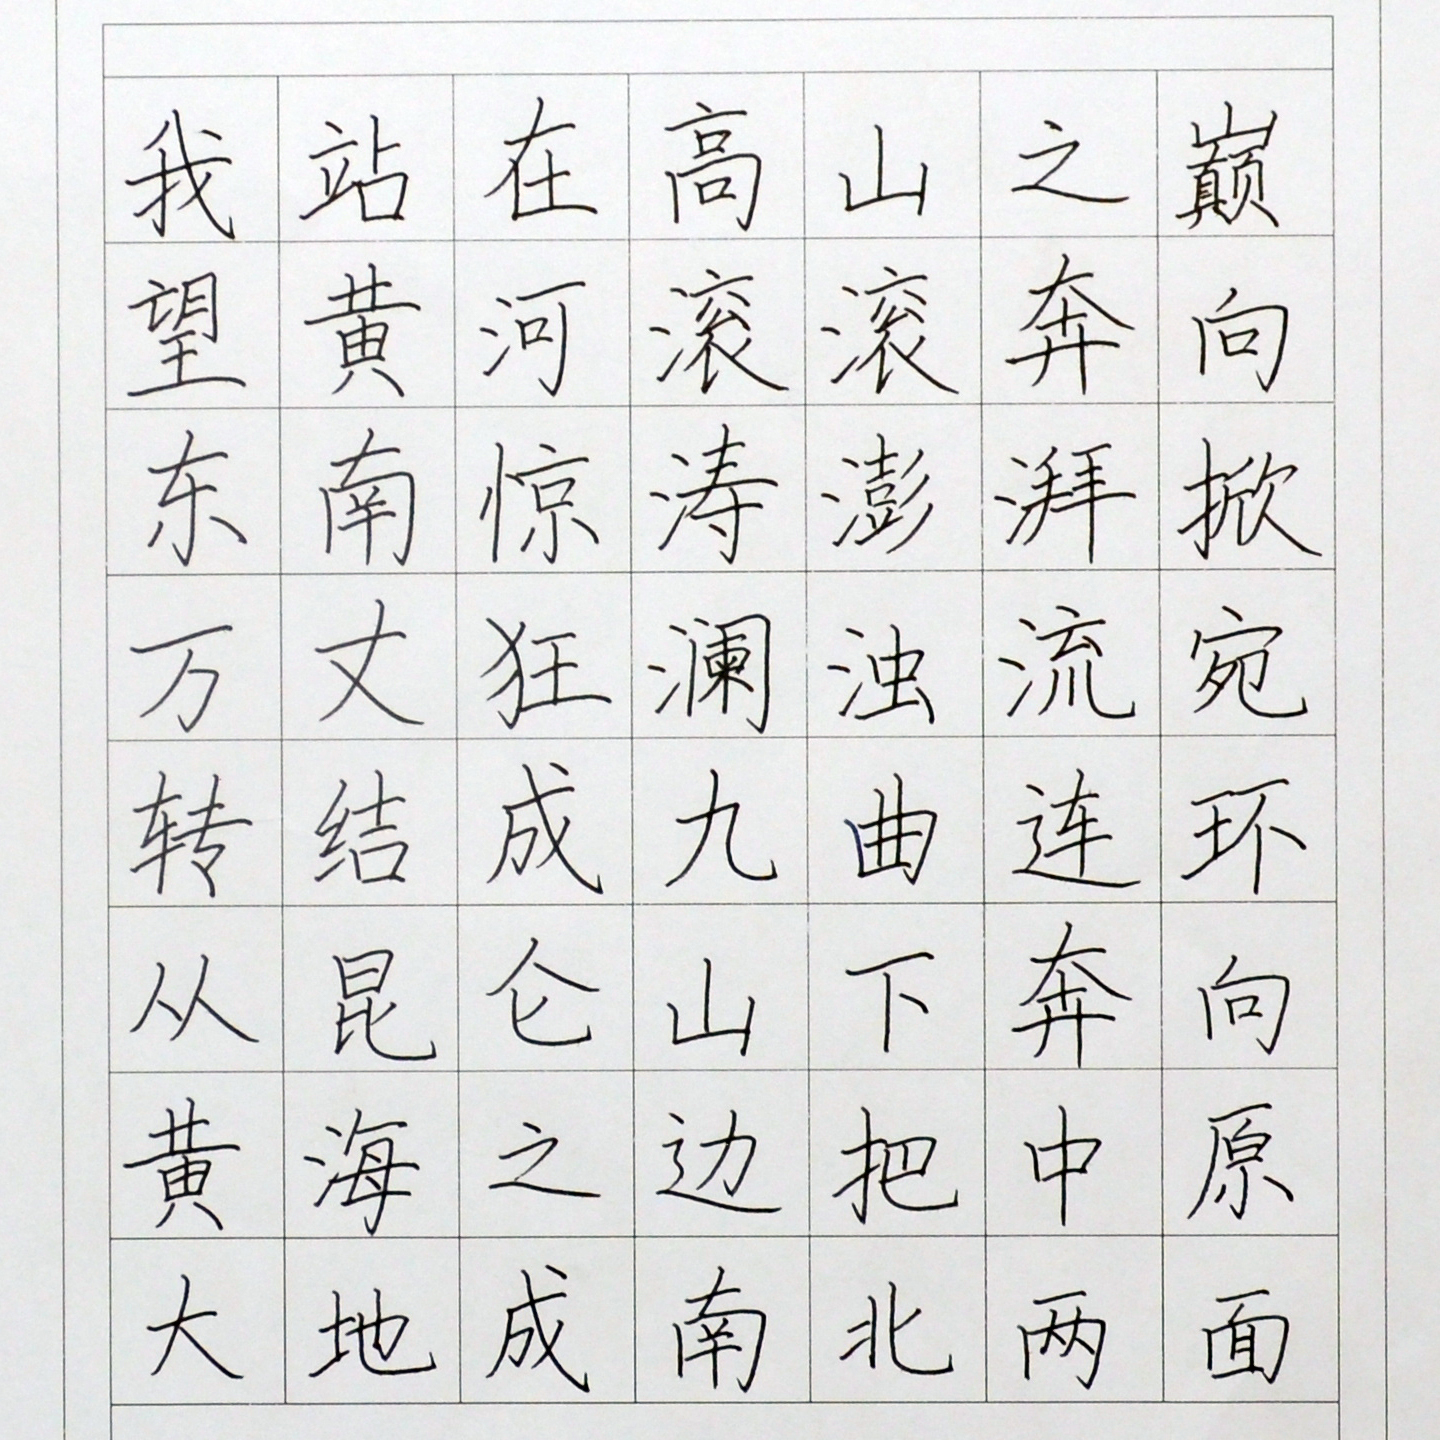 我站在高山之巅
望黄河滚滚奔向
东南惊涛澎湃掀
万丈狂澜浊流宛
转结成九曲连环
从昆仑山下奔向
黄海之边把中原
大地成南北两面